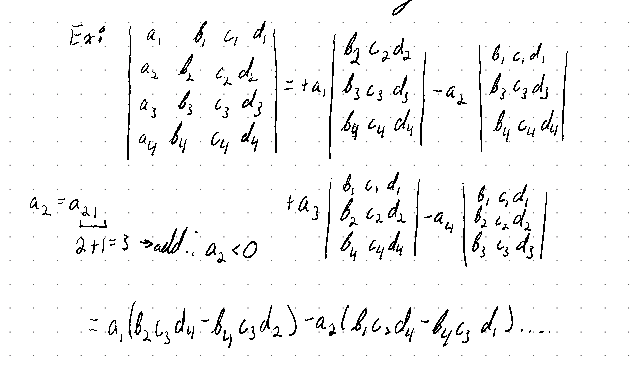 Ex:
| a₁ b₁ c₁ d₁ |
| a₂ b₂ c₂ d₂ |
| a₃ b₃ c₃ d₃ |
| a₄ b₄ c₄ d₄ |
= +a₁
| b₂ c₂ d₂ |
| b₃ c₃ d₃ |
| b₄ c₄ d₄ |
-a₂
| b₁ c₁ d₁ |
| b₃ c₃ d₃ |
| b₄ c₄ d₄ |
+a₃
| b₁ c₁ d₁ |
| b₂ c₂ d₂ |
| b₄ c₄ d₄ |
-a₄
| b₁ c₁ d₁ |
| b₂ c₂ d₂ |
| b₃ c₃ d₃ |
a₂ = a₂₁
2+1=3 → odd ∴ a₂ < 0
= a₁(b₂c₃d₄ - b₄c₃d₂) - a₂(b₁c₃d₄ - b₄c₃d₁) ....